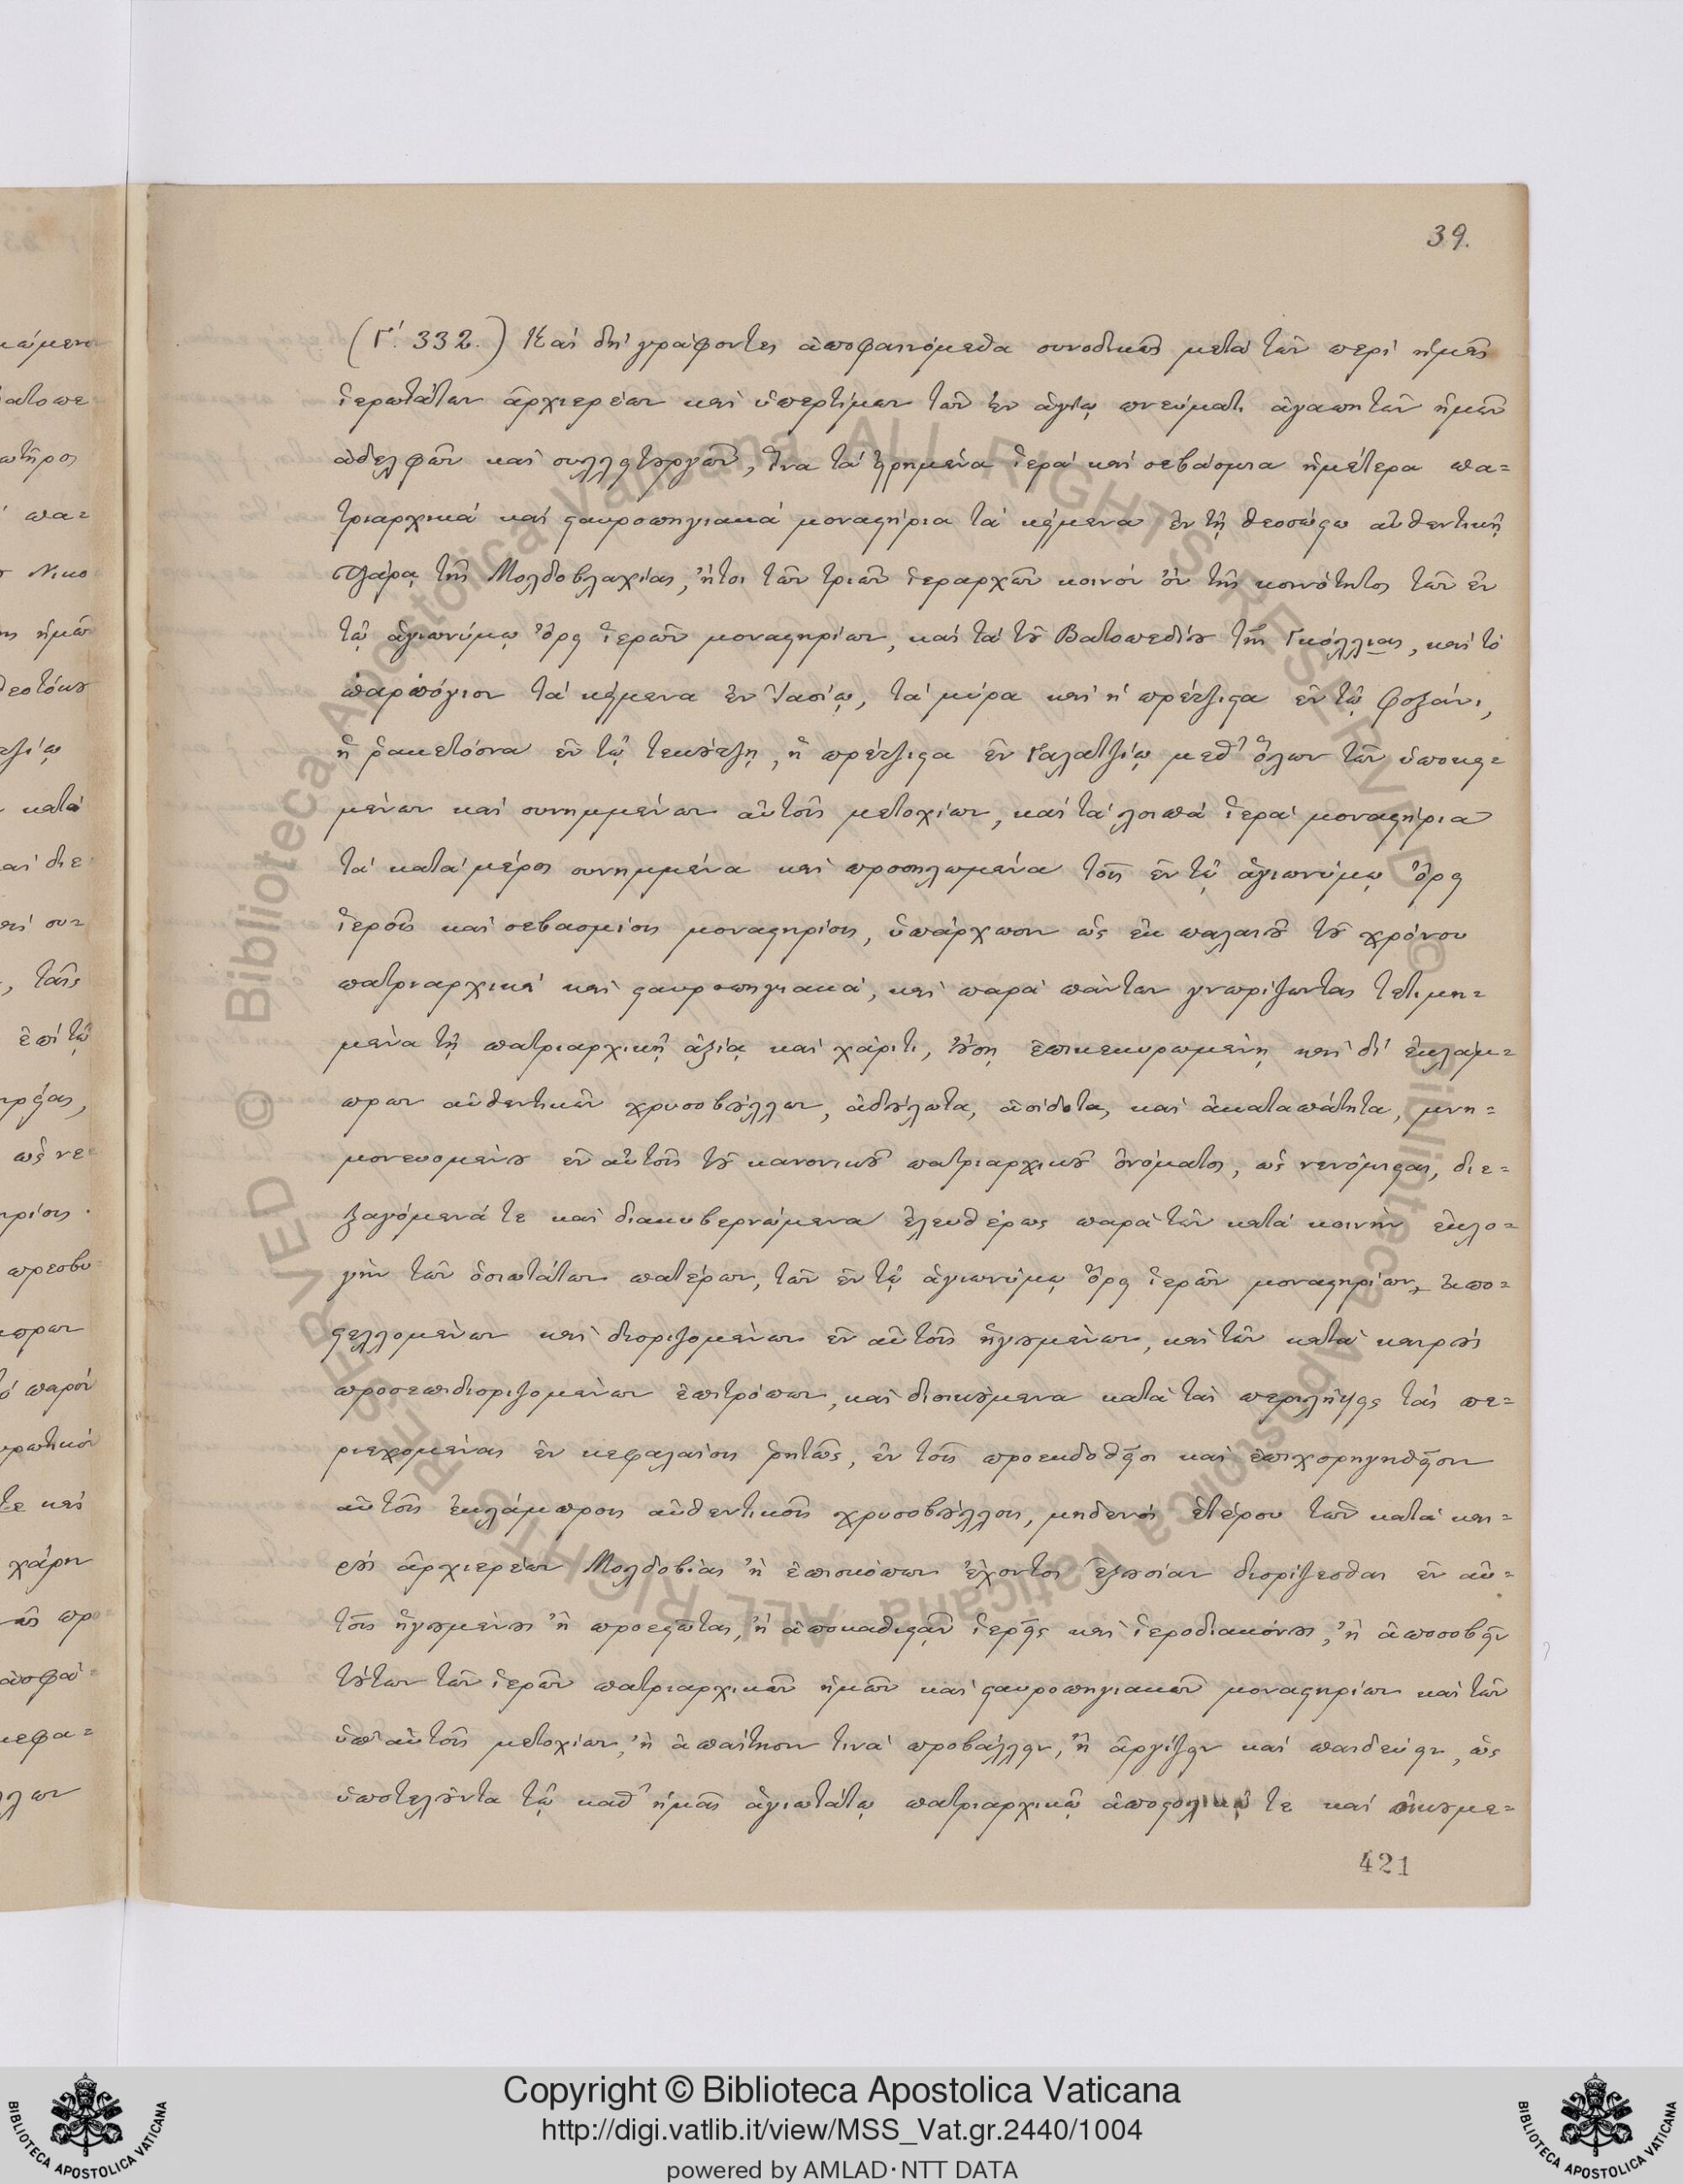 39.
(Γ΄. 332.) Καὶ δὴ γράφοντες ἀποφαινόμεθα συνοδικῶς μετὰ τῶν περὶ ἡμᾶς
ἱερωτάτων ἀρχιερέων καὶ ὑπερτίμων τῶν ἐν ἁγίῳ πνεύματι ἀγαπητῶν ἡμῶν
ἀδελφῶν καὶ συλλειτουργῶν, ἵνα τὰ εἰρημένα ἱερὰ καὶ σεβάσμια ἡμέτερα πα=
τριαρχικὰ καὶ σταυροπηγιακὰ μοναστήρια τὰ κείμενα ἐν τῇ θεοσώστῳ αὐθεντικῇ
τζάρᾳ τῆς Μολδοβλαχίας, ἤτοι τῶν τριῶν ἱεραρχῶν κοινὸν ὂν τῆς κοινότητος τῶν ἐν
τῷ ἁγιωνύμῳ ὄρει ἱερῶν μοναστηρίων, καὶ τὰ τοῦ Βατοπεδίου τῆς Γκόλλιας, καὶ τὸ
παρπόγιον τὰ κείμενα ἐν Ἰασίῳ, τὰ μύρα καὶ ἡ πρέτζιστα ἐν τῷ φοξάνι,
ἡ ῥακετόσνα ἐν τῷ τεκούτζῃ, ἡ πρέτζιστα ἐν Γαλατζίῳ μεθ᾽ ὅλων τῶν ὑποκει=
μένων καὶ συνημμένων αὐτοῖς μετοχίων, καὶ τὰ λοιπὰ ἱερὰ μοναστήρια
τὰ κατὰ μέρος συνημμένα καὶ προσηλωμένα τοῖς ἐν τῷ ἁγιωνύμῳ ὄρει
ἱεροῖς καὶ σεβασμίοις μοναστηρίοις, ὑπάρχωσιν ὡς ἐκ παλαιοῦ τοῦ χρόνου
πατριαρχικὰ καὶ σταυροπηγιακὰ, καὶ παρὰ πάντων γνωρίζωνται τετιμη=
μένα τῇ πατριαρχικῇ ἀξίᾳ καὶ χάριτι, οὔσῃ ἐπικεκυρωμένῃ καὶ δι᾽ ἐκλάμ=
πρων αὐθεντικῶν χρυσοβούλλων, ἀδούλωτα, ἀσίδοτα, καὶ ἀκαταπάτητα, μνη=
μονευομένου ἐν αὐτοῖς τοῦ κανονικοῦ πατριαρχικοῦ ὀνόματος, ὡς νενόμισται, διε=
ξαγόμενά τε καὶ διακυβερνώμενα ἐλευθέρως παρὰ τῶν κατὰ κοινὴν ἐκλο=
γὴν τῶν ὁσιωτάτων πατέρων, τῶν ἐν τῷ ἁγιωνύμῳ ὄρει ἱερῶν μοναστηρίων, ἀπο=
στελλομένων καὶ διοριζομένων ἐν αὐτοῖς ἡγουμένων, καὶ τῶν κατὰ καιροὺς
προσεπιδιοριζομένων ἐπιτρόπων, καὶ διοικούμενα κατὰ τὰς περιλήψεις τὰς πε=
ριεχομένας ἐν κεφαλαίοις ῥητῶς, ἐν τοῖς προεκδοθεῖσι καὶ ἐπιχορηγηθεῖσιν
αὐτοῖς ἐκλάμπροις αὐθεντικοῖς χρυσοβούλλοις, μηδενὸς ἑτέρου τῶν κατὰ και=
ροὺς ἀρχιερέων Μολδοβίας ἢ ἐπισκόπων ἔχοντος ἐξουσίαν διορίζεσθαι ἐν αὐ=
τοῖς ἡγουμένους ἢ προεστῶτας, ἢ ἀποκαθιστᾷν ἱερεῖς καὶ ἱεροδιακόνους, ἢ ἀποσοβεῖν
τούτων τῶν ἱερῶν πατριαρχικῶν ἡμῶν καὶ σταυροπηγιακῶν μοναστηρίων καὶ τῶν
ὑπ᾽ αὐτοῖς μετοχίων, ἢ ἀπαίτησιν τινὰ προβάλλειν, ἢ ἀργίζειν καὶ παιδεύειν, ὡς
ὑποτελοῦντα τῷ καθ᾽ ἡμᾶς ἁγιωτάτῳ πατριαρχικῷ ἀποστολικῷ τε καὶ οἰκουμε=
421
Copyright © Biblioteca Apostolica Vaticana
http://digi.vatlib.it/view/MSS_Vat.gr.2440/1004
powered by AMLAD·NTT DATA